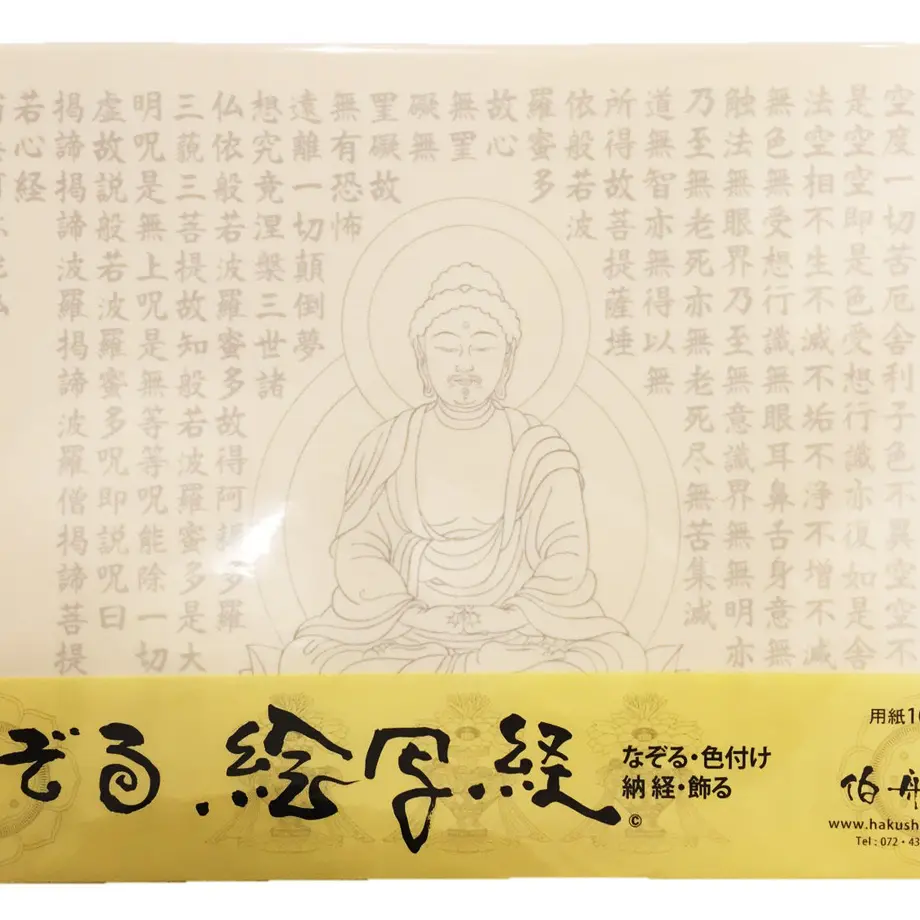 空度一切苦厄舍利子色不異空空不
是空空即是色受想行識亦復如是舍
法空相不生不滅不垢不浄不増不減
無色無受想行識無眼耳鼻舌身意無
触法無眼界乃至無意識界無無明亦
乃至無老死亦無老死尽無苦集滅
道無智亦無得以無
所得故菩提薩埵
依般若波
羅蜜多
故心
無罣
礙無
罣礙故
無有恐怖
遠離一切顛倒夢
想究竟涅槃三世諸
仏依般若波羅蜜多故得阿耨多羅
三藐三菩提故知般若波羅蜜多是大
明呪是無上呪是無等等呪能除一切
虚故説般若波羅蜜多呪即説呪曰
揭諦揭諦波羅揭諦波羅僧揭諦菩提
若心経
ぞる 絵写経©
なぞる・色付け
納経・飾る
用紙10
伯舟
www.hakush
Tel : 072・43